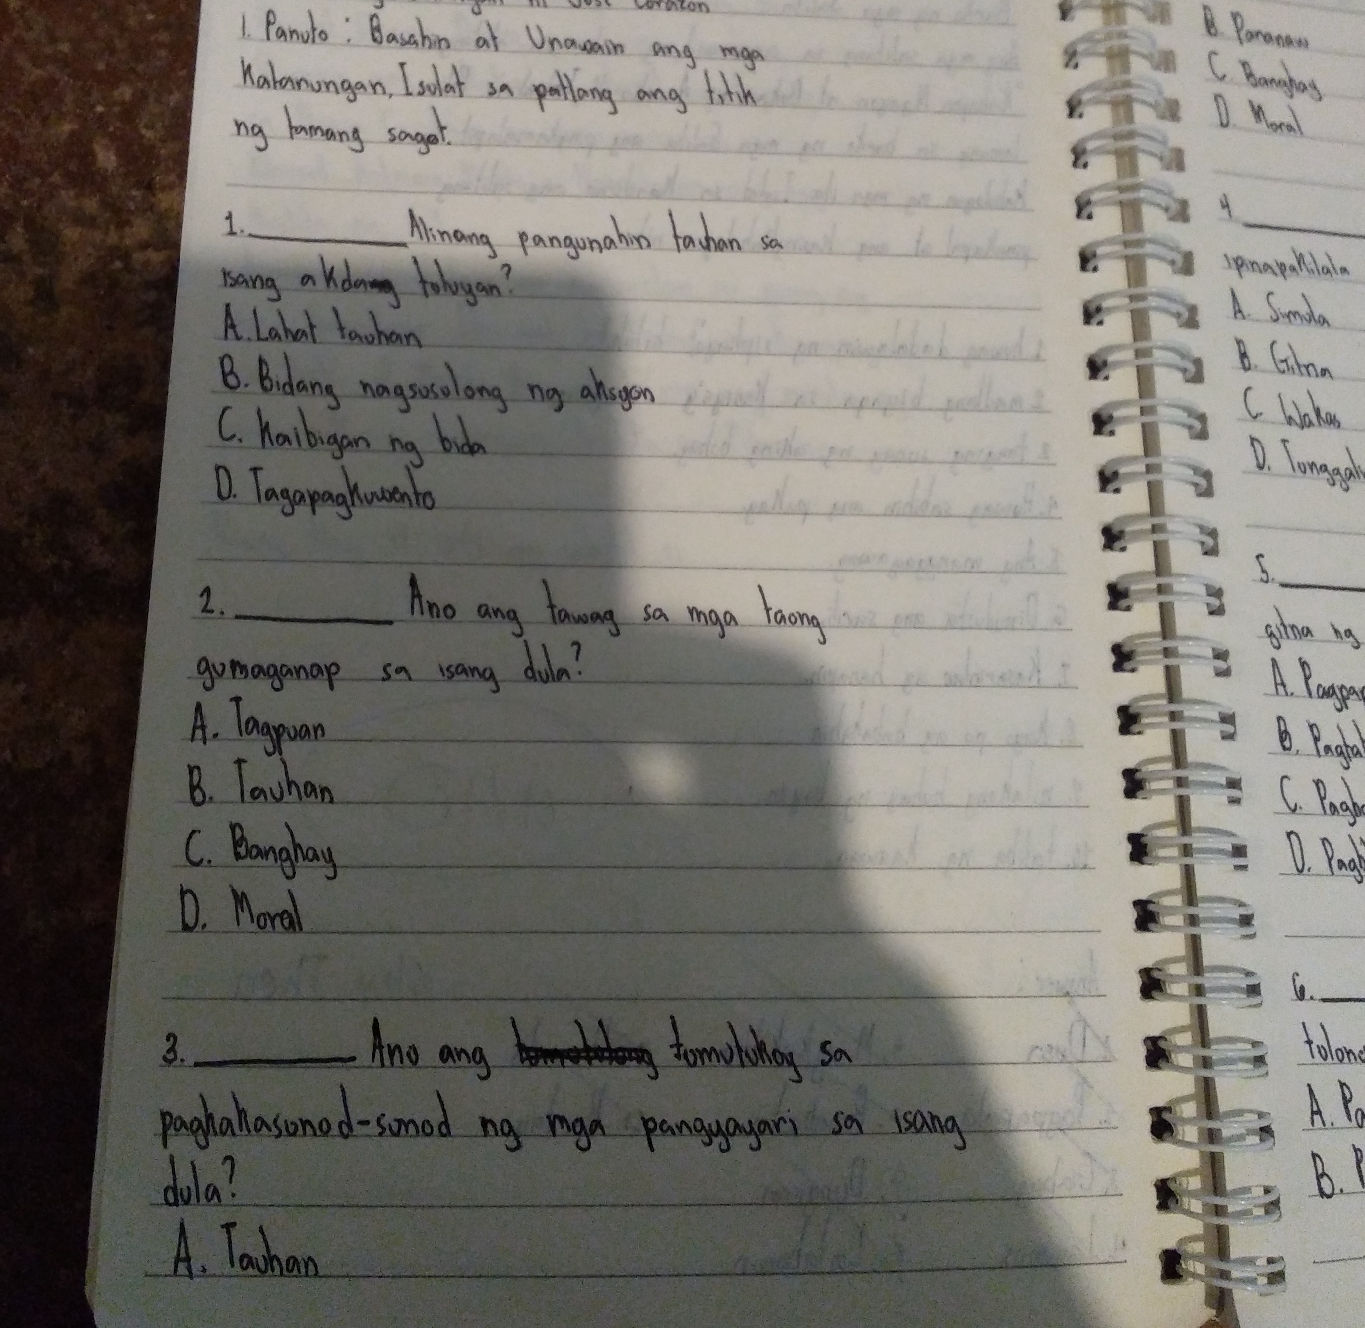 1. Panuto: Basahin at Unawain ang mga
Katanungan, Isulat sa patlang ang titik
ng tamang sagot.
1. ________ Alinang pangunahin tauhan sa
isang akdang tuluyan?
A. Lahat tauhan
B. Bidang nagsusulong ng aksyon
C. Kaibigan ng bida
D. Tagapagkuwento
2. ________ Ano ang tawag sa mga taong
gumaganap sa isang dula?
A. Tagpuan
B. Tauhan
C. Banghay
D. Moral
3. ________ Ano ang tumutukoy sa
pagkakasunod-sunod ng mga pangyayari sa isang
dula?
A. Tauhan
B. Pananaw
C. Banghay
D. Moral
4 ________
ipinapakilala
A. Simula
B. Gitna
C Wakas
D. Tunggali
5. ________
gitna ng
A.
B.
C.
D.
6. ________
A.
B.